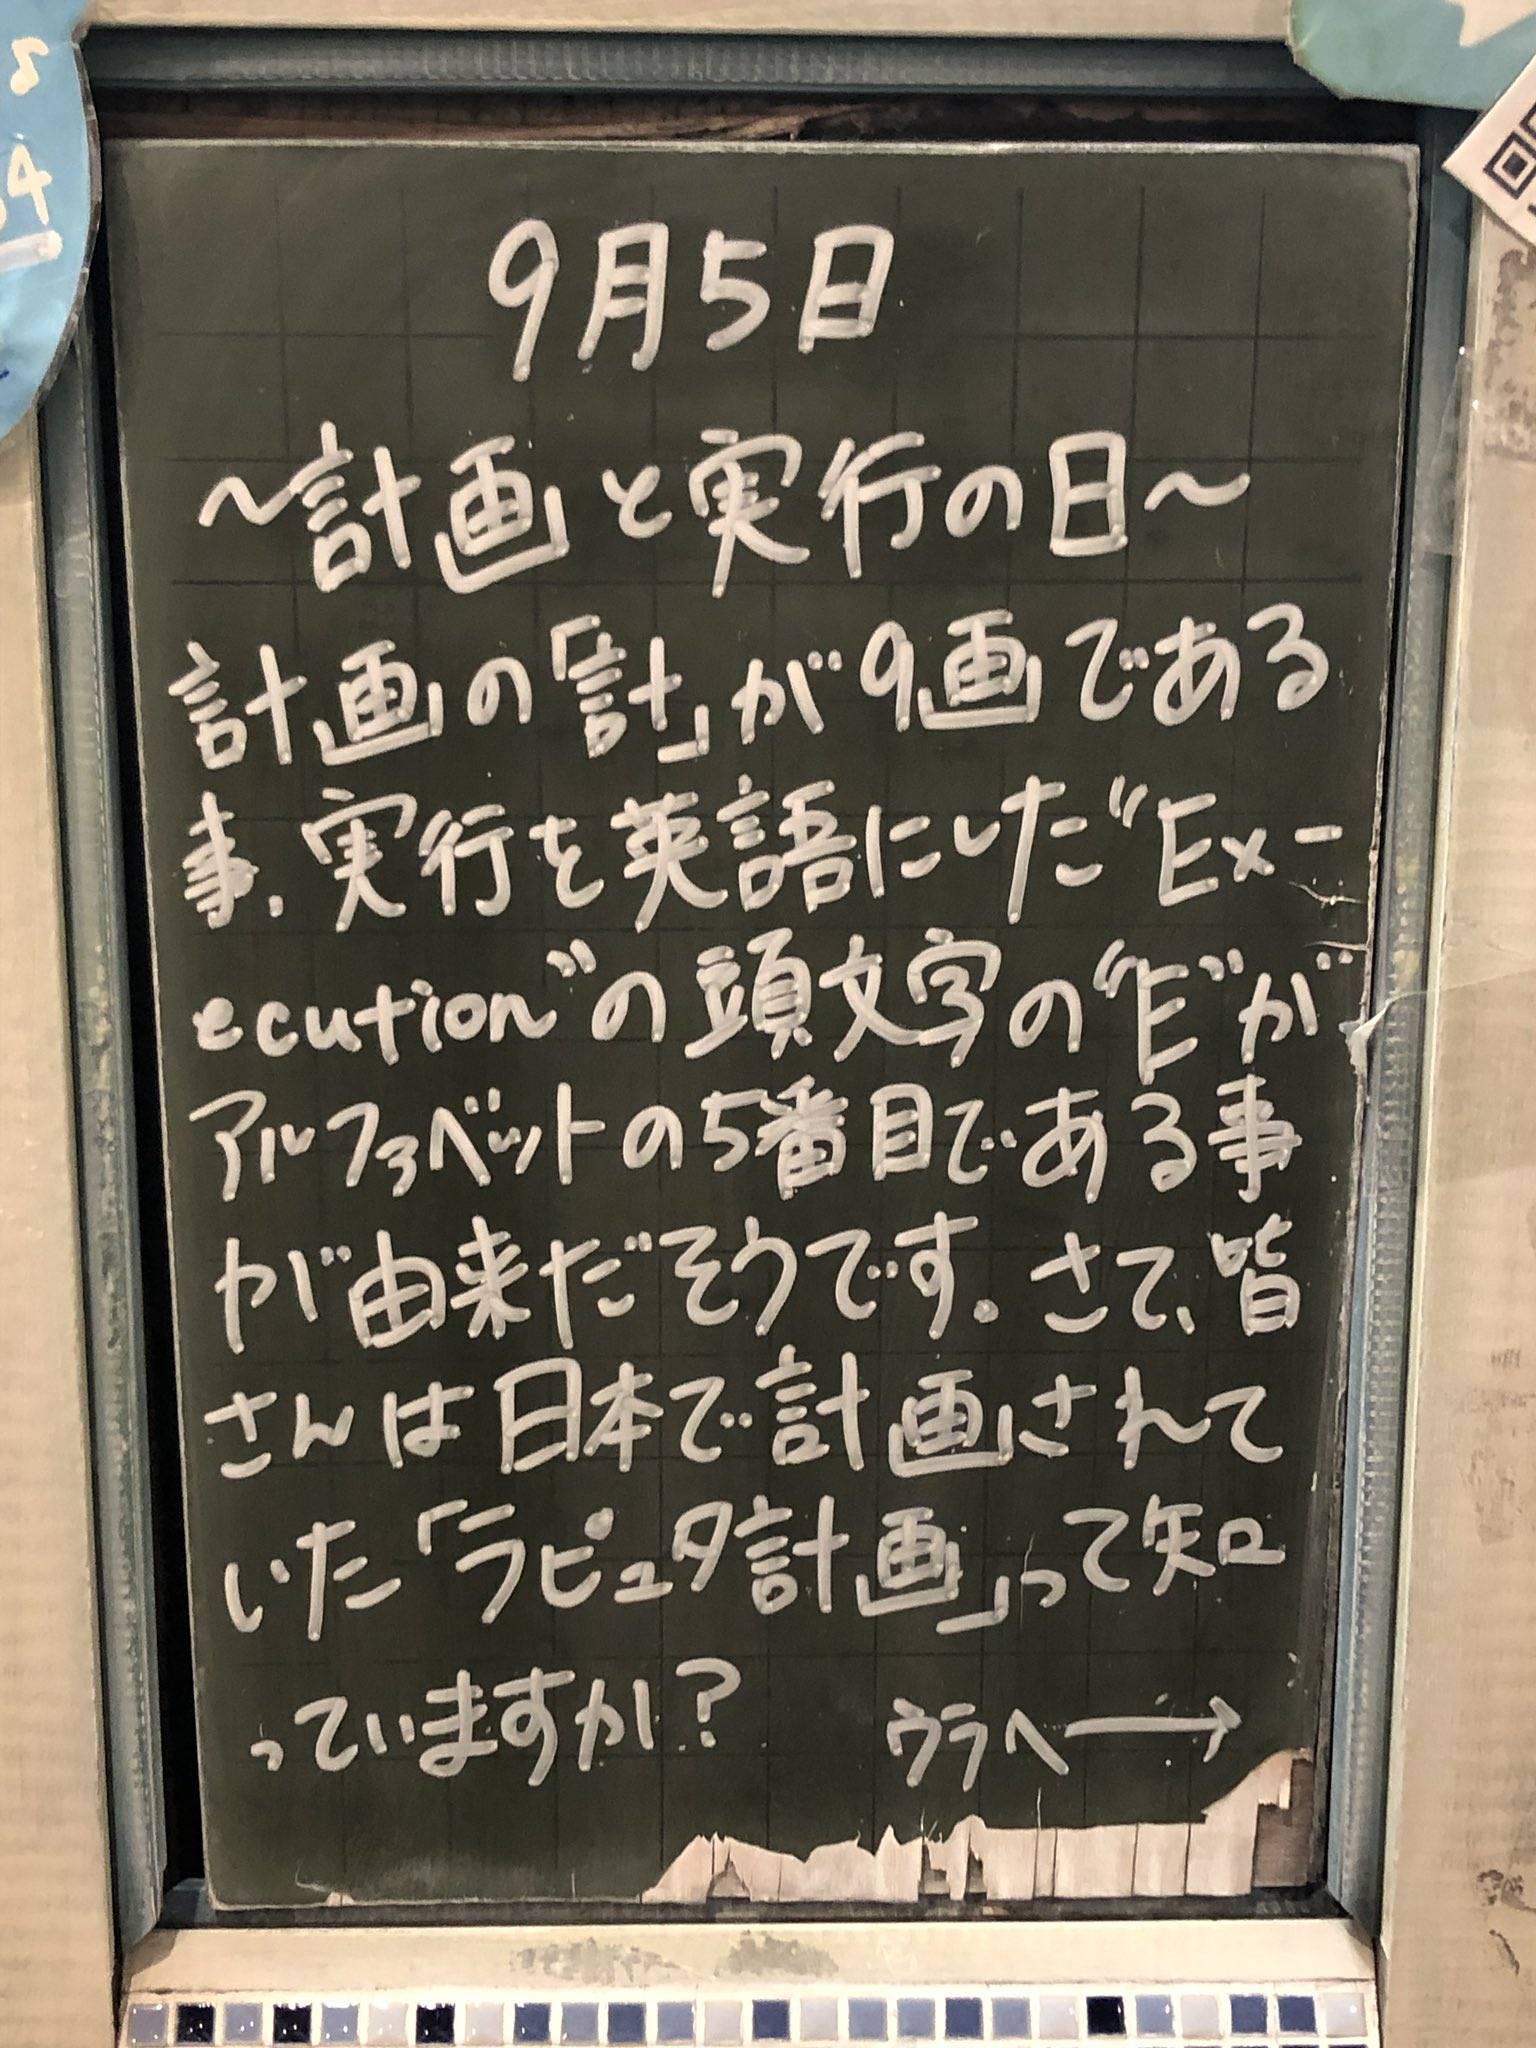 9月5日
～計画と実行の日～
計画の「計」が9画である
事、実行を英語にした“Ex-
ecution”の頭文字の“E”が
アルファベットの5番目である事
が由来だそうです。さて、皆
さんは日本で計画されて
いた「ラピュタ計画」って知
っていますか?
ウラへ→